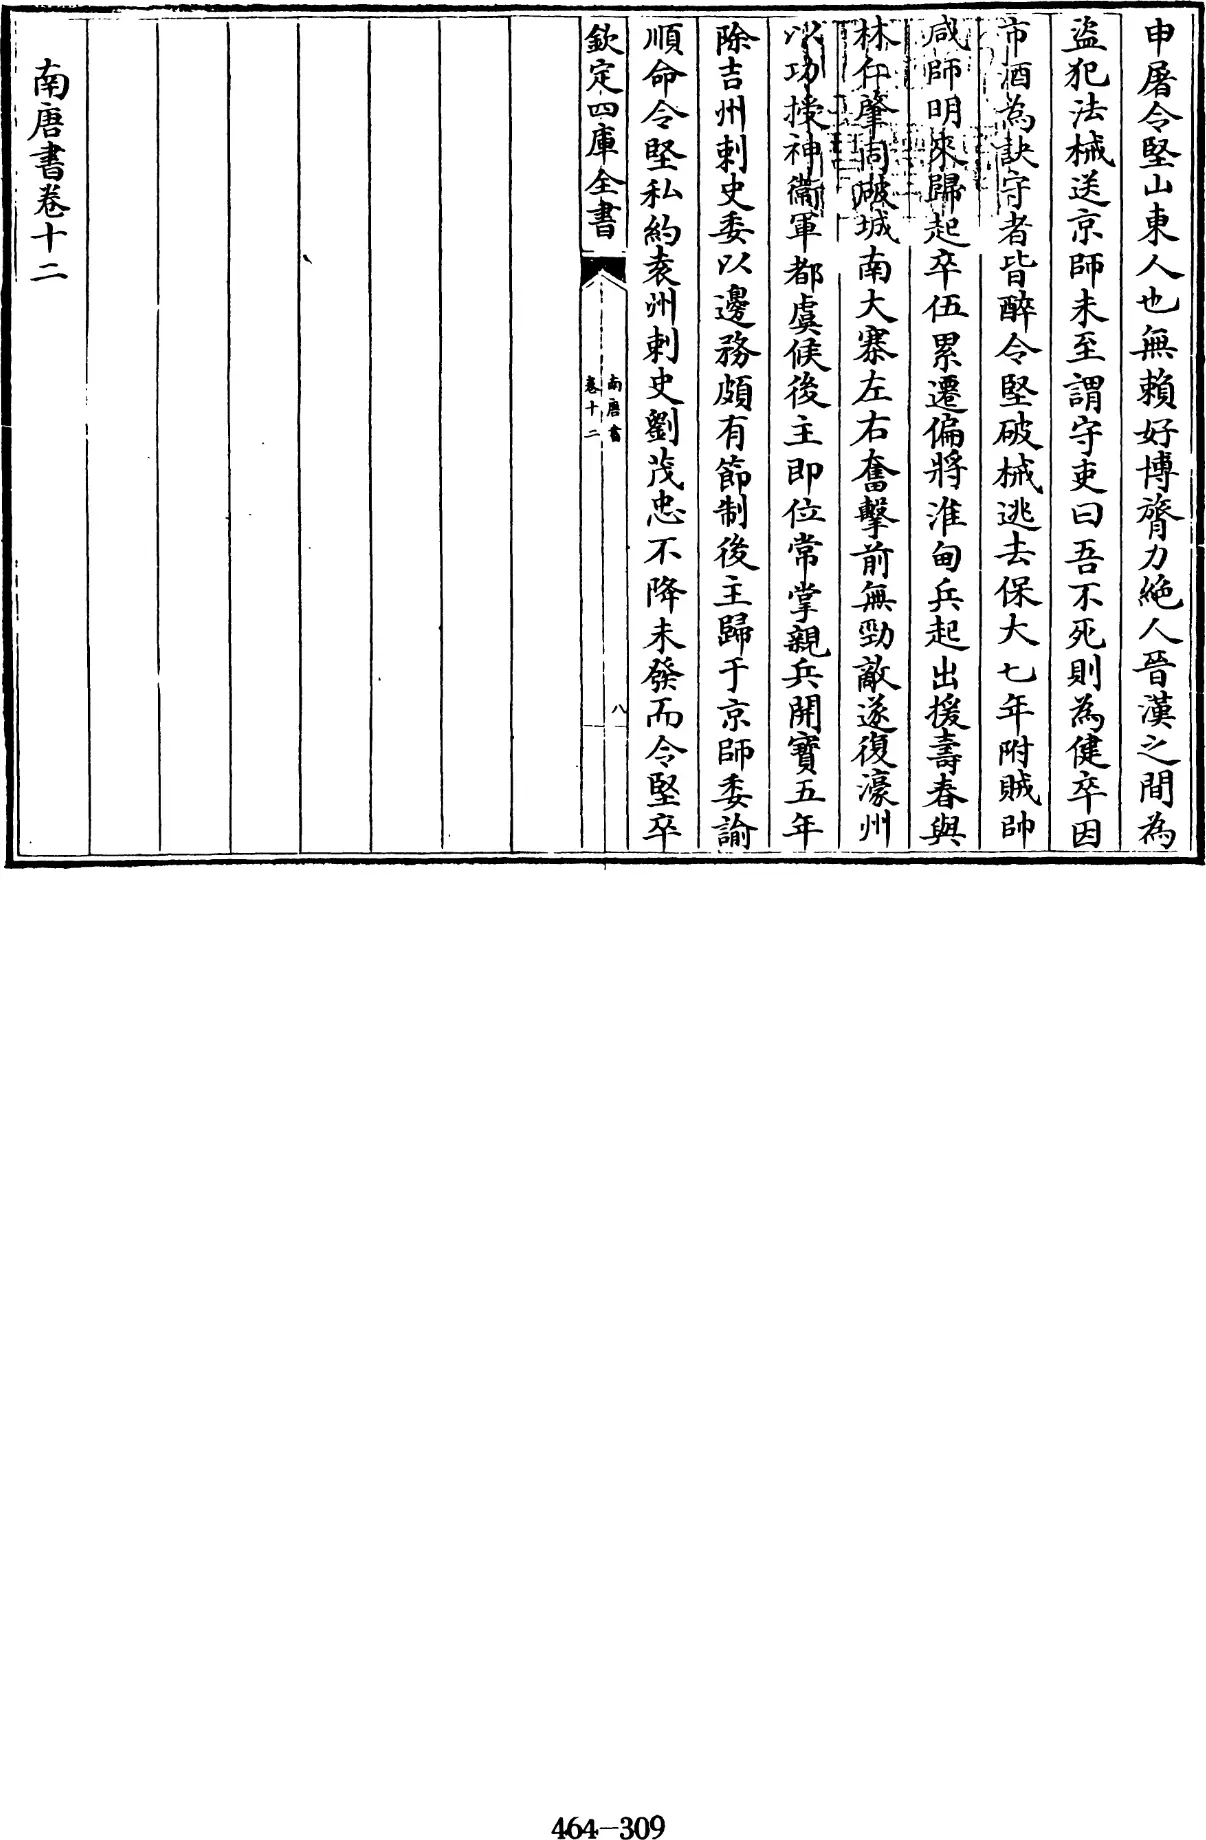 申屠令堅山東人也無賴好博膂力絶人晉漢之間為
盗犯法械送京師未至謂守吏曰吾不死則為健卒因
市酒為訣守者皆醉令堅破械逃去保大七年附賊帥
咸師明來歸起卒伍累遷偏將淮甸兵起出援壽春與
林仁肇同破城南大寨左右奮擊前無勁敵遂復濠州
以功授神衞軍都虞候後主即位常掌親兵開寶五年
除吉州刺史委以邊務頗有節制後主歸于京師委諭
順命令堅私約袁州刺史劉茂忠不降未發而令堅卒
欽定四庫全書
南唐書
卷十二
八
南唐書卷十二
464-309